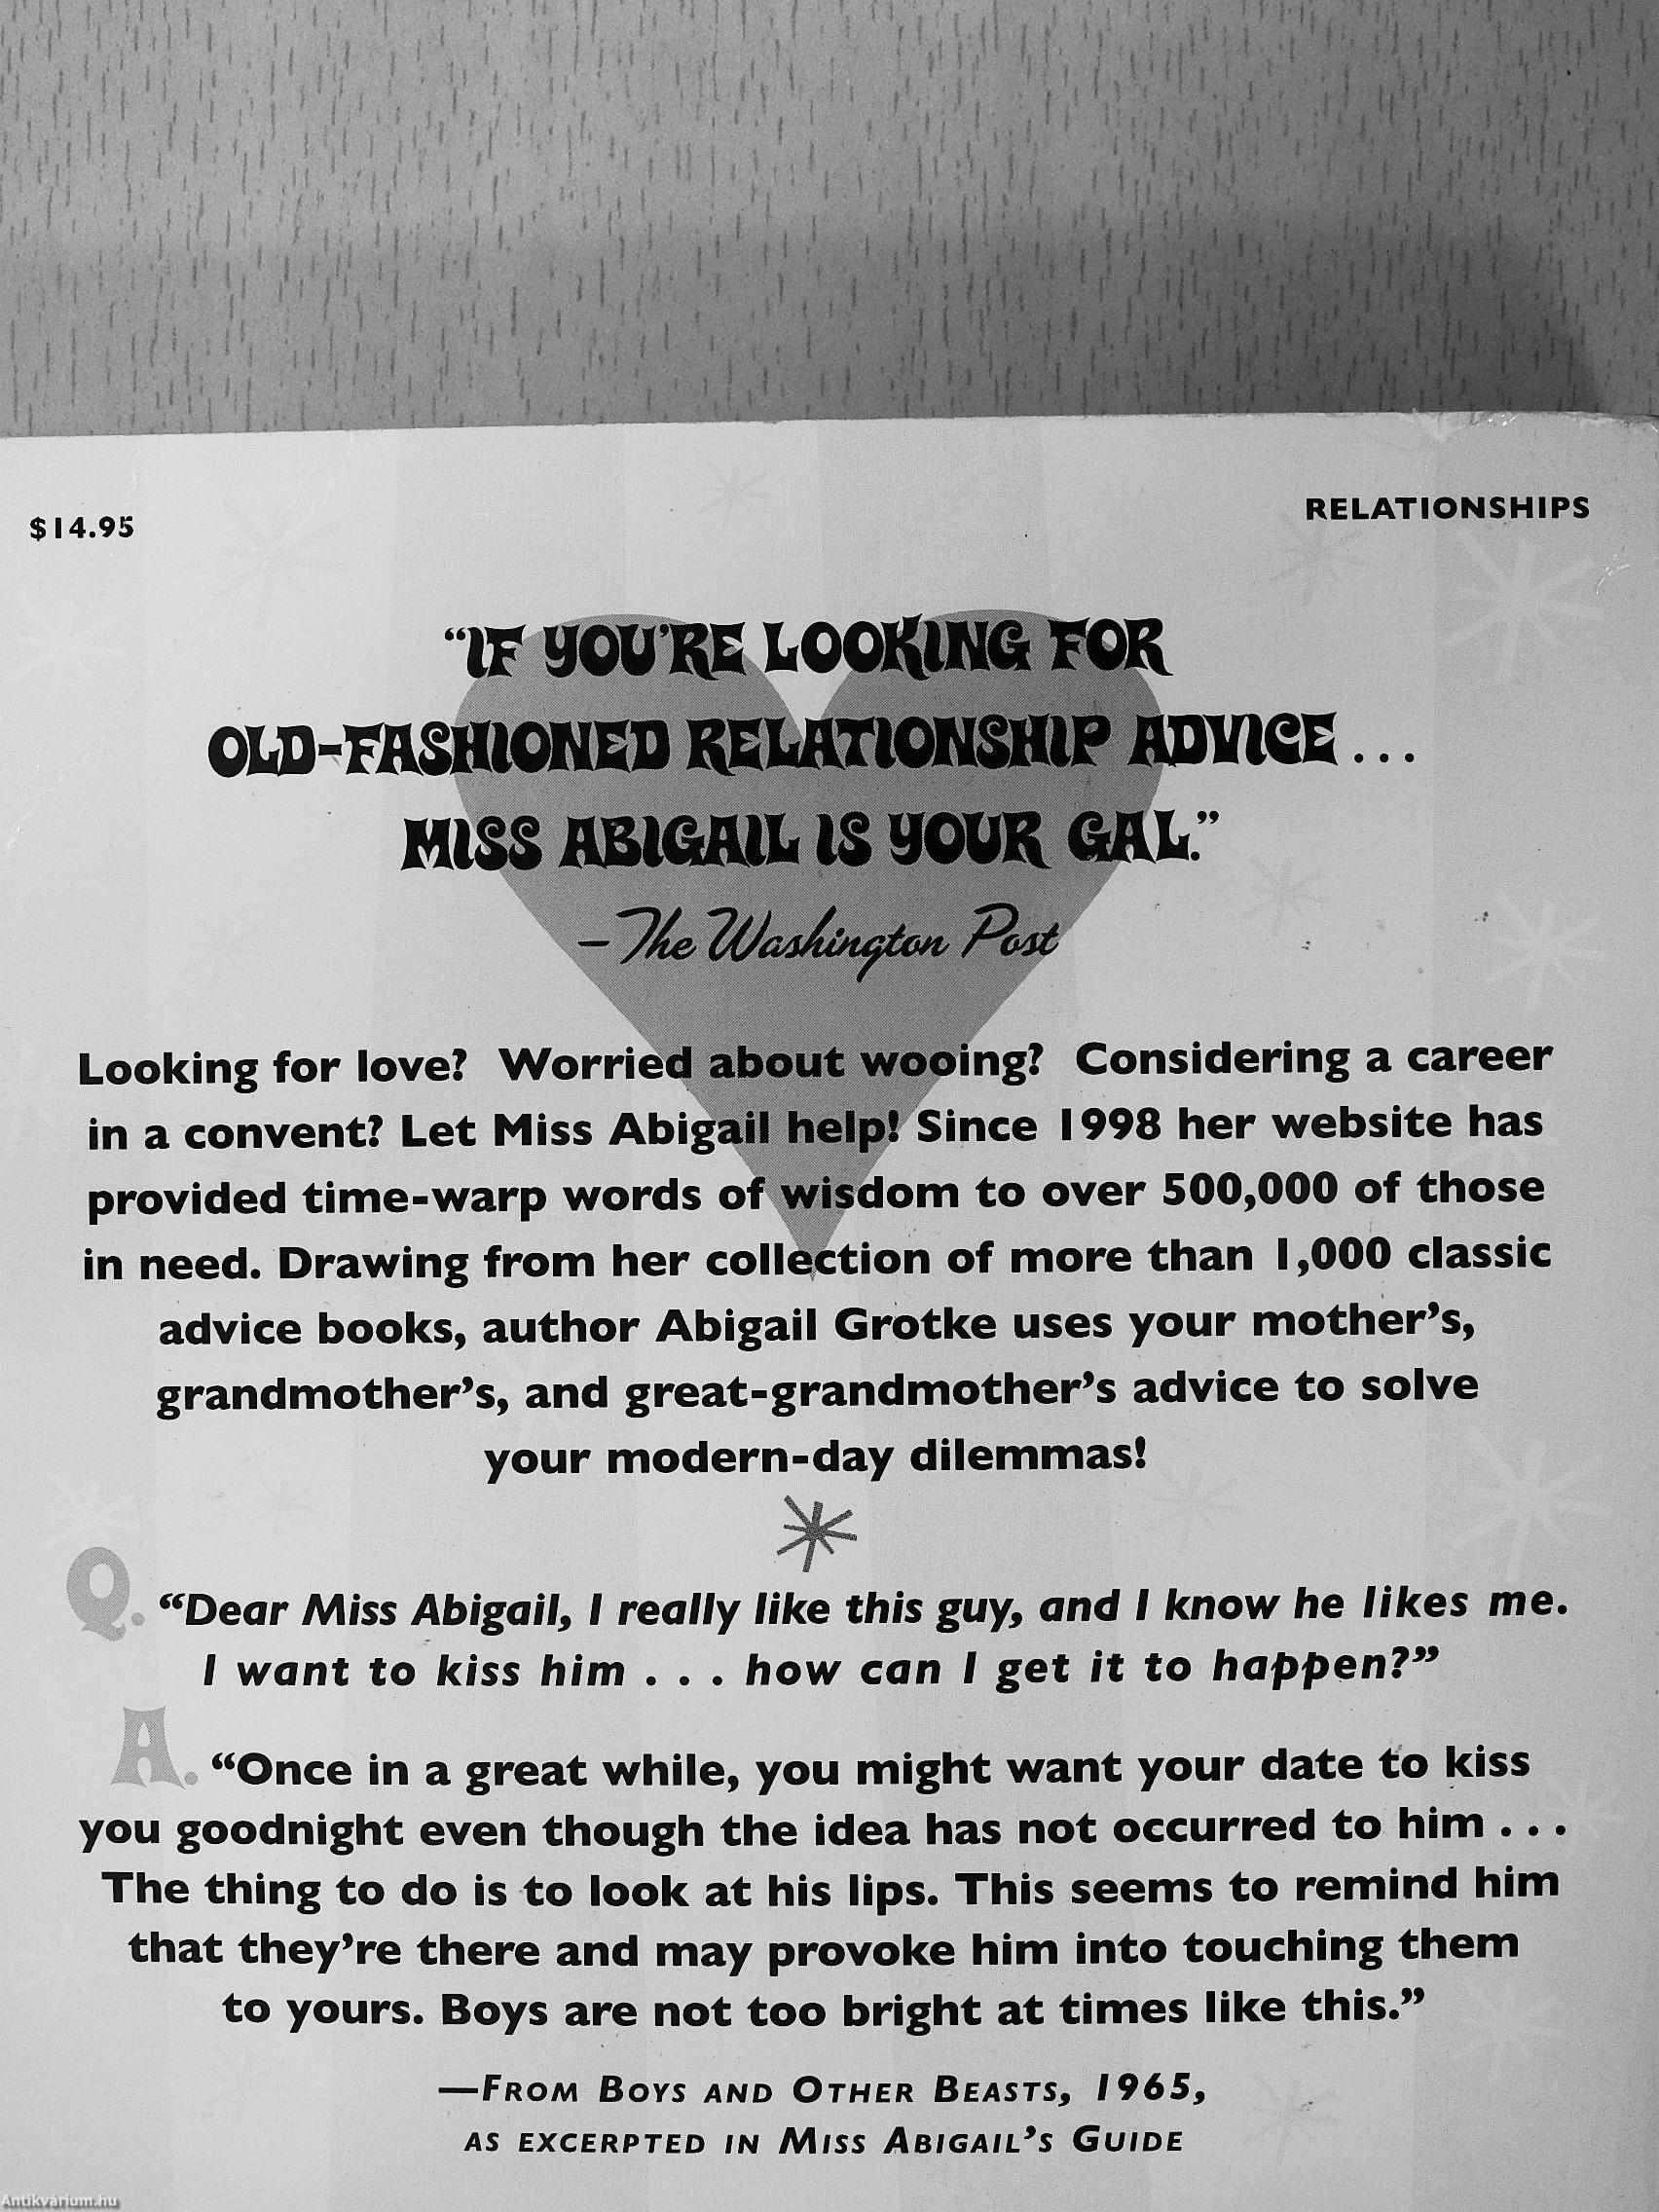 $14.95
RELATIONSHIPS
“IF YOU’RE LOOKING FOR
OLD-FASHIONED RELATIONSHIP ADVICE...
MISS ABIGAIL IS YOUR GAL.”
–The Washington Post
Looking for love? Worried about wooing? Considering a career
in a convent? Let Miss Abigail help! Since 1998 her website has
provided time-warp words of wisdom to over 500,000 of those
in need. Drawing from her collection of more than 1,000 classic
advice books, author Abigail Grotke uses your mother’s,
grandmother’s, and great-grandmother’s advice to solve
your modern-day dilemmas!
Q. “Dear Miss Abigail, I really like this guy, and I know he likes me.
I want to kiss him . . . how can I get it to happen?”
A. “Once in a great while, you might want your date to kiss
you goodnight even though the idea has not occurred to him . . .
The thing to do is to look at his lips. This seems to remind him
that they’re there and may provoke him into touching them
to yours. Boys are not too bright at times like this.”
—FROM BOYS AND OTHER BEASTS, 1965,
AS EXCERPTED IN MISS ABIGAIL’S GUIDE
Antikvárium.hu